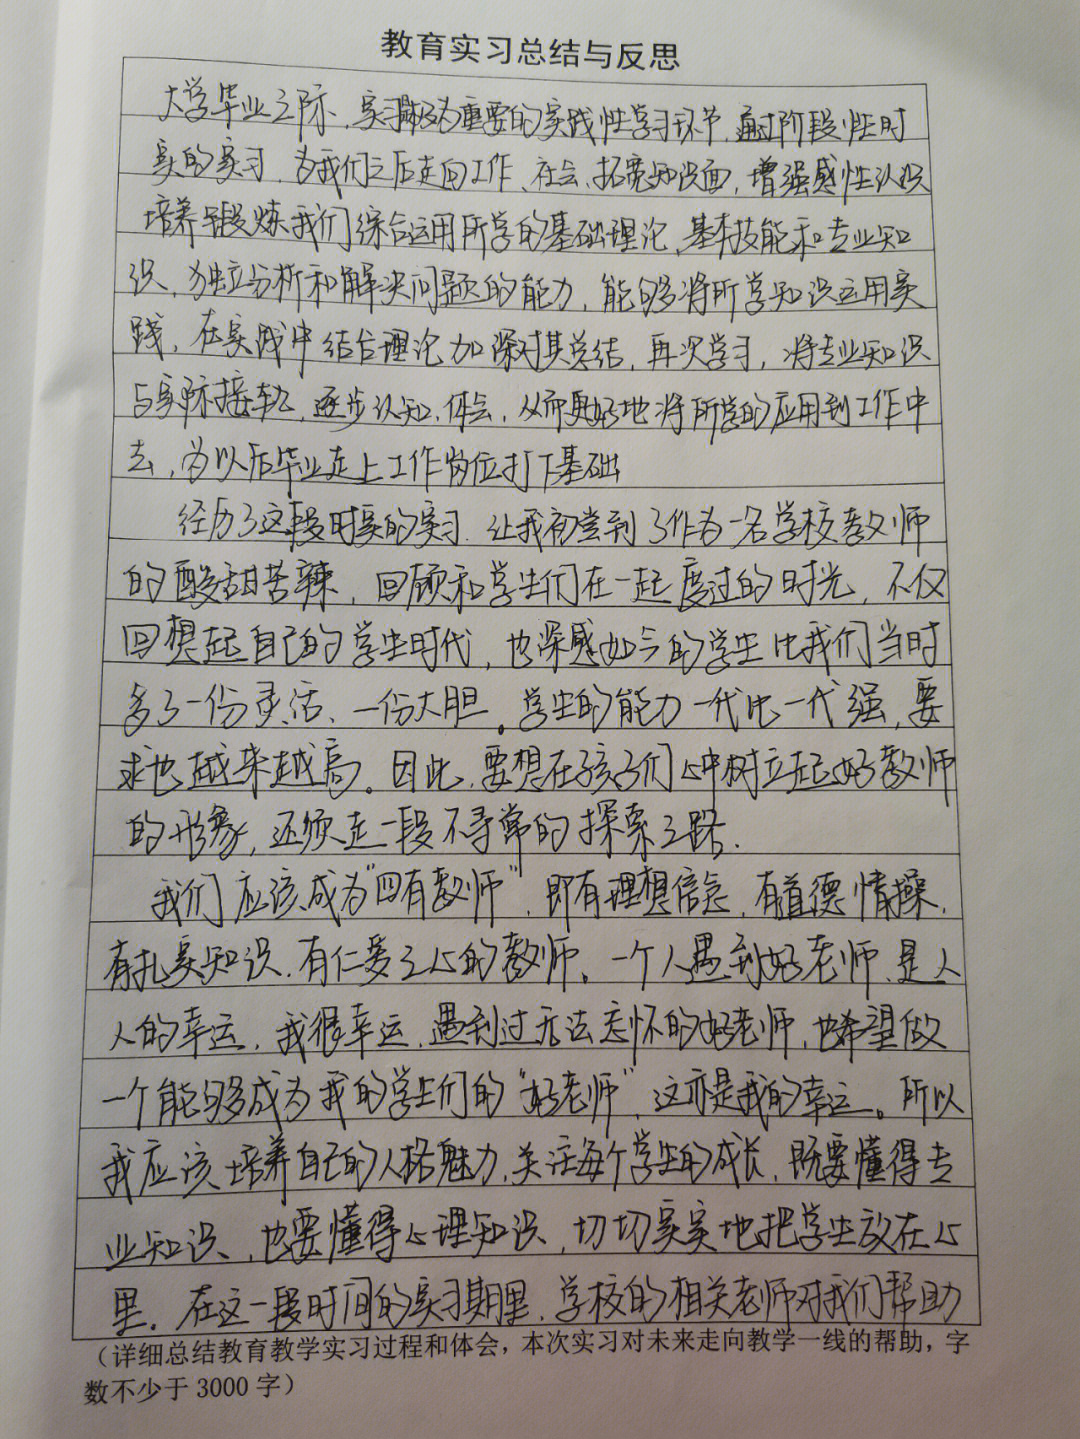 教育实习总结与反思
大学毕业之际，实习极为重要的实践性学习环节，通过阶段性时
实的实习，为我们之后走向工作、社会、拓宽知识面，增强感性认识
培养锻炼我们综合运用所学的基础理论、基本技能和专业知
识，独立分析和解决问题的能力，能够将所学知识运用实
践，在实践中结合理论加深对其总结，再次学习，将专业知识
与实际接轨，逐步认知，体会，从而更好地将所学的应用到工作中
去，为以后毕业走上工作岗位打下基础
经历了这段时实的实习，让我初尝到了作为一名学校教师
的酸甜苦辣，回顾和学生们在一起度过的时光，不仅
回想起自己的学生时代，也深感如今的学生比我们当时
多了一份灵活、一份大胆。学生的能力一代比一代强，要
求也越来越高。因此，要想在孩子们心中树立起好教师
的形象，还须走一段不寻常的探索之路.
我们应该成为"四有教师"，即有理想信念，有道德情操，
有扎实知识，有仁爱之心的教师。一个人遇到好老师，是人
人的幸运，我很幸运，遇到过无法忘怀的好老师，也希望做
一个能够成为我的学生们的"好老师"，这亦是我的幸运。所以
我应该培养自己的人格魅力，关注每个学生的成长，既要懂得专
业知识、也要懂得心理知识，切切实实地把学生放在心
里。在这一段时间的实习期里，学校的相关老师对我们帮助
（详细总结教育教学实习过程和体会，本次实习对未来走向教学一线的帮助，字
数不少于 3000 字）